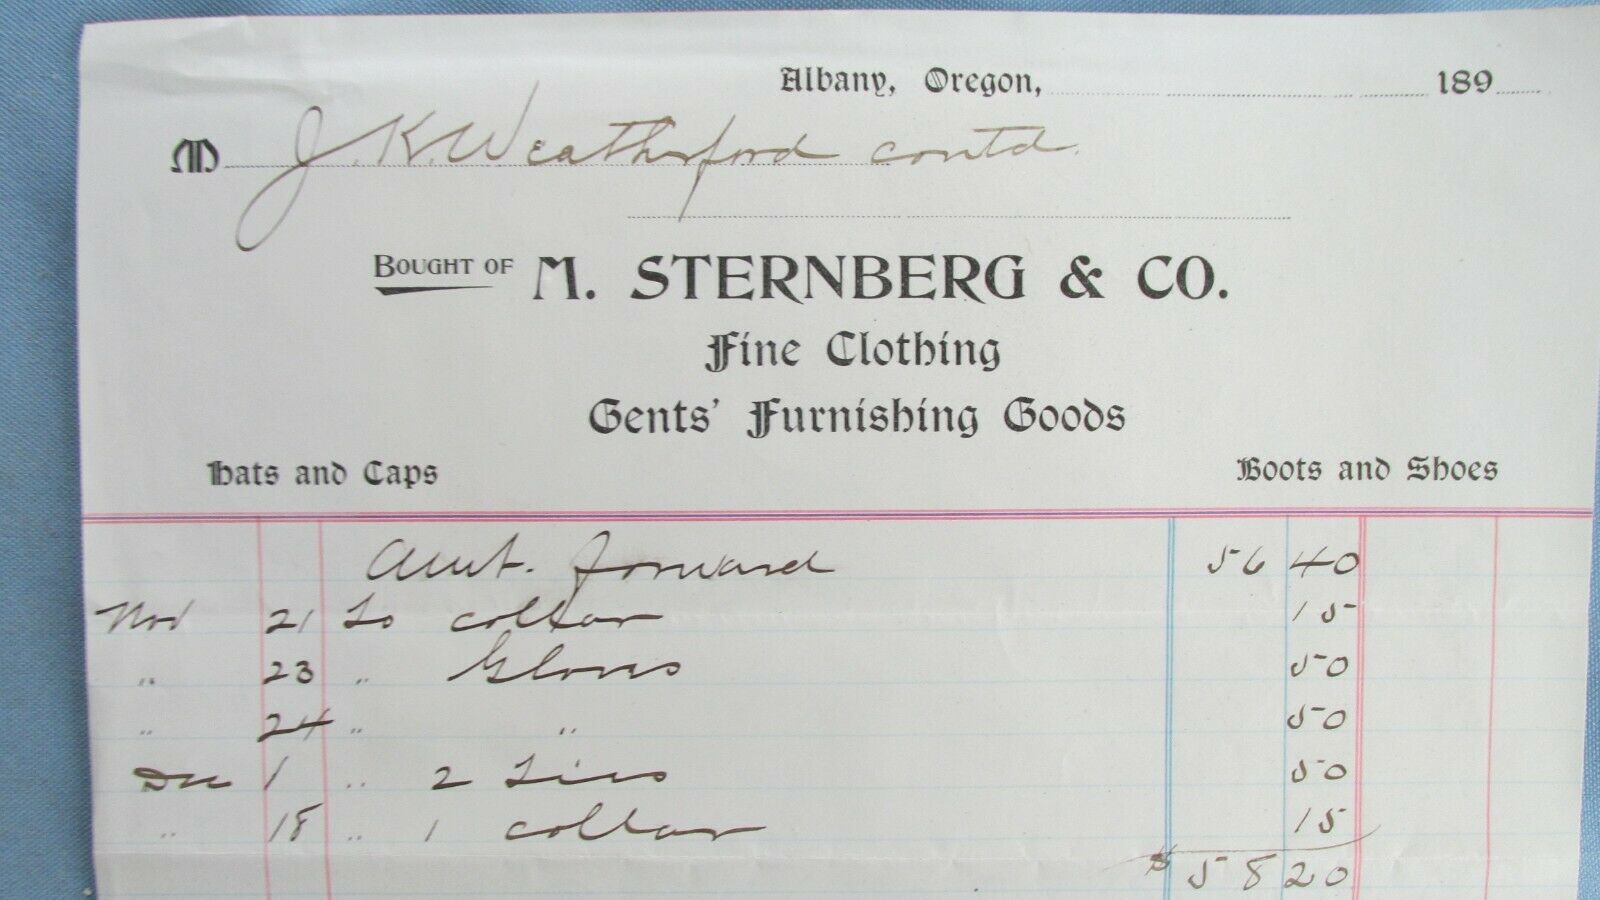 Albany, Oregon, 189
M J. K. Weatherford contd.
BOUGHT OF M. STERNBERG & CO.
Fine Clothing
Gents' Furnishing Goods
Hats and Caps Boots and Shoes
Amt. forward 56 40
Nov 21 To collar 15
" 23 " Gloves 50
" 24 " " 50
Dec 1 " 2 Ties 50
" 18 " 1 collar 15
$ 58 20